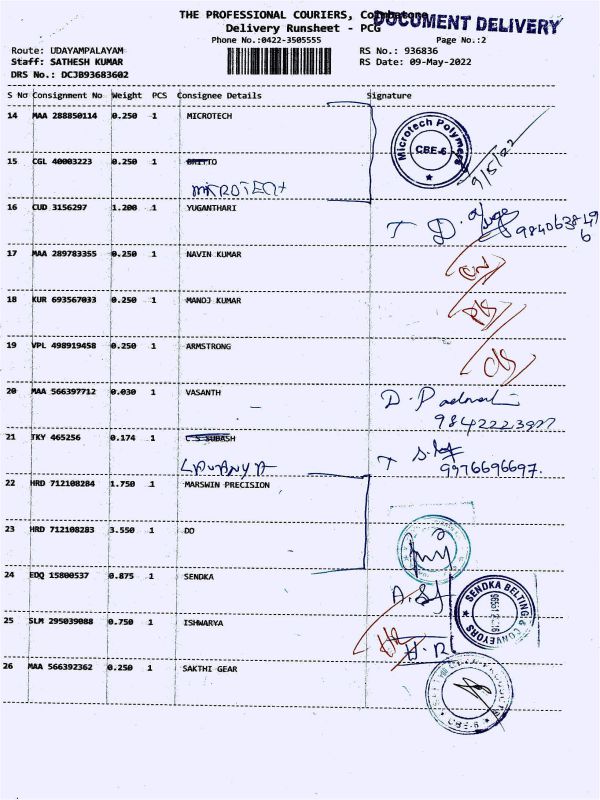 THE PROFESSIONAL COURIERS, Coimbatore
DOCUMENT DELIVERY
Delivery Runsheet - PCG
Phone No.:0422-3505555 Page No.:2
Route: UDAYAMPALAYAM RS No.: 936836
Staff: SATHESH KUMAR RS Date: 09-May-2022
DRS No.: DCJB93683602
S No Consignment No Weight PCS Consignee Details Signature
14 MAA 288850114 0.250 1 MICROTECH
Microtech Polymers
CBE-6
9/5/22
15 CGL 40003223 0.250 1 BRITTO
MICROTECH
16 CUD 3156297 1.200 1 YUGANTHARI
17 MAA 289783355 0.250 1 NAVIN KUMAR
18 KUR 693567033 0.250 1 MANOJ KUMAR
19 VPL 498919458 0.250 1 ARMSTRONG
20 MAA 566397712 0.030 1 VASANTH
21 TKY 465256 0.174 1 C S SUBASH
LAVANYA
9976696697.
22 HRD 712108284 1.750 1 MARSWIN PRECISION
23 HRD 712108283 3.550 1 DO
24 EDQ 15800537 0.875 1 SENDKA
SENDKA BELTING & CONVEYORS
25 SLM 295039088 0.750 1 ISHWARYA
26 MAA 566392362 0.250 1 SAKTHI GEAR